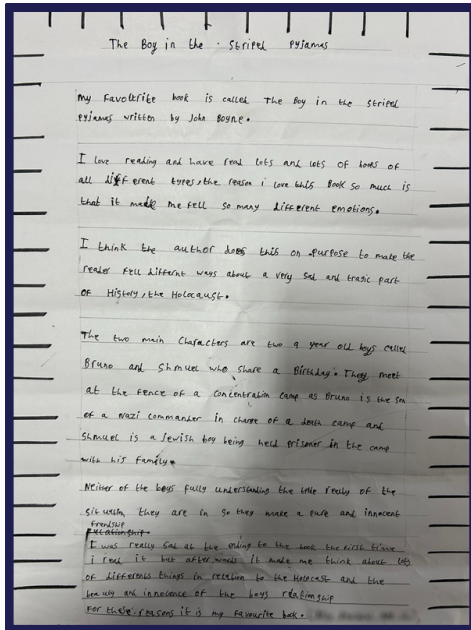 The Boy in the Striped Pyjamas
My favourite book is called The Boy in the striped
Pyjamas written by John Boyne.
I love reading and have read lots and lots of books of
all different types, the reason i love this Book so much is
that it made me fell so many different emotions.
I think the author does this on purpose to make the
reader fell differnt ways about a very sad and tragic part
of History, the Holocaust.
The two main Characters are two 9 year old boys called
Bruno and Shmuel who share a Birthday. They meet
at the fence of a Concentration camp as Bruno is the son
of a Nazi commander in charge of a death camp and
Shmuel is a Jewish boy being held prisoner in the camp
with his family.
Neither of the boys fully understanding the really of the
situation, they are in so they make a pure and innocent
friendship
relationship.
I was really sad at the ending to the book the first time
i read it but after words it made me think about lots
of differents things in relation to the Holocast and the
beauty and innocence of the boys relationship
For these reasons it is my favourite book.